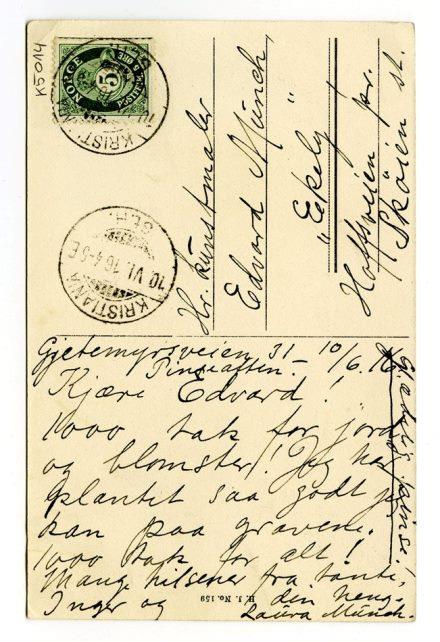 K5014
NORGE
5
POSTFRIM. 5 ØRE
KRISTI
KRISTIANIA
10 VI. 16. 4-5 E
Hr. kunstmaler
Edvard Münch,
"Ekely"
Hoffsveien pr.
Skøien st.
Gjetemyrsveien 31 10/6. 16.
Pinseaften. -
Kjære Edvard!
1000 tak for jord
og blomster! Jeg har
plantet saa godt jeg
kan paa gravene.
1000 tak for alt!
Mange hilsener fra tante,
Inger og den heng.
Laura Münch.
Glædelig pinse!
H. J. No. 159